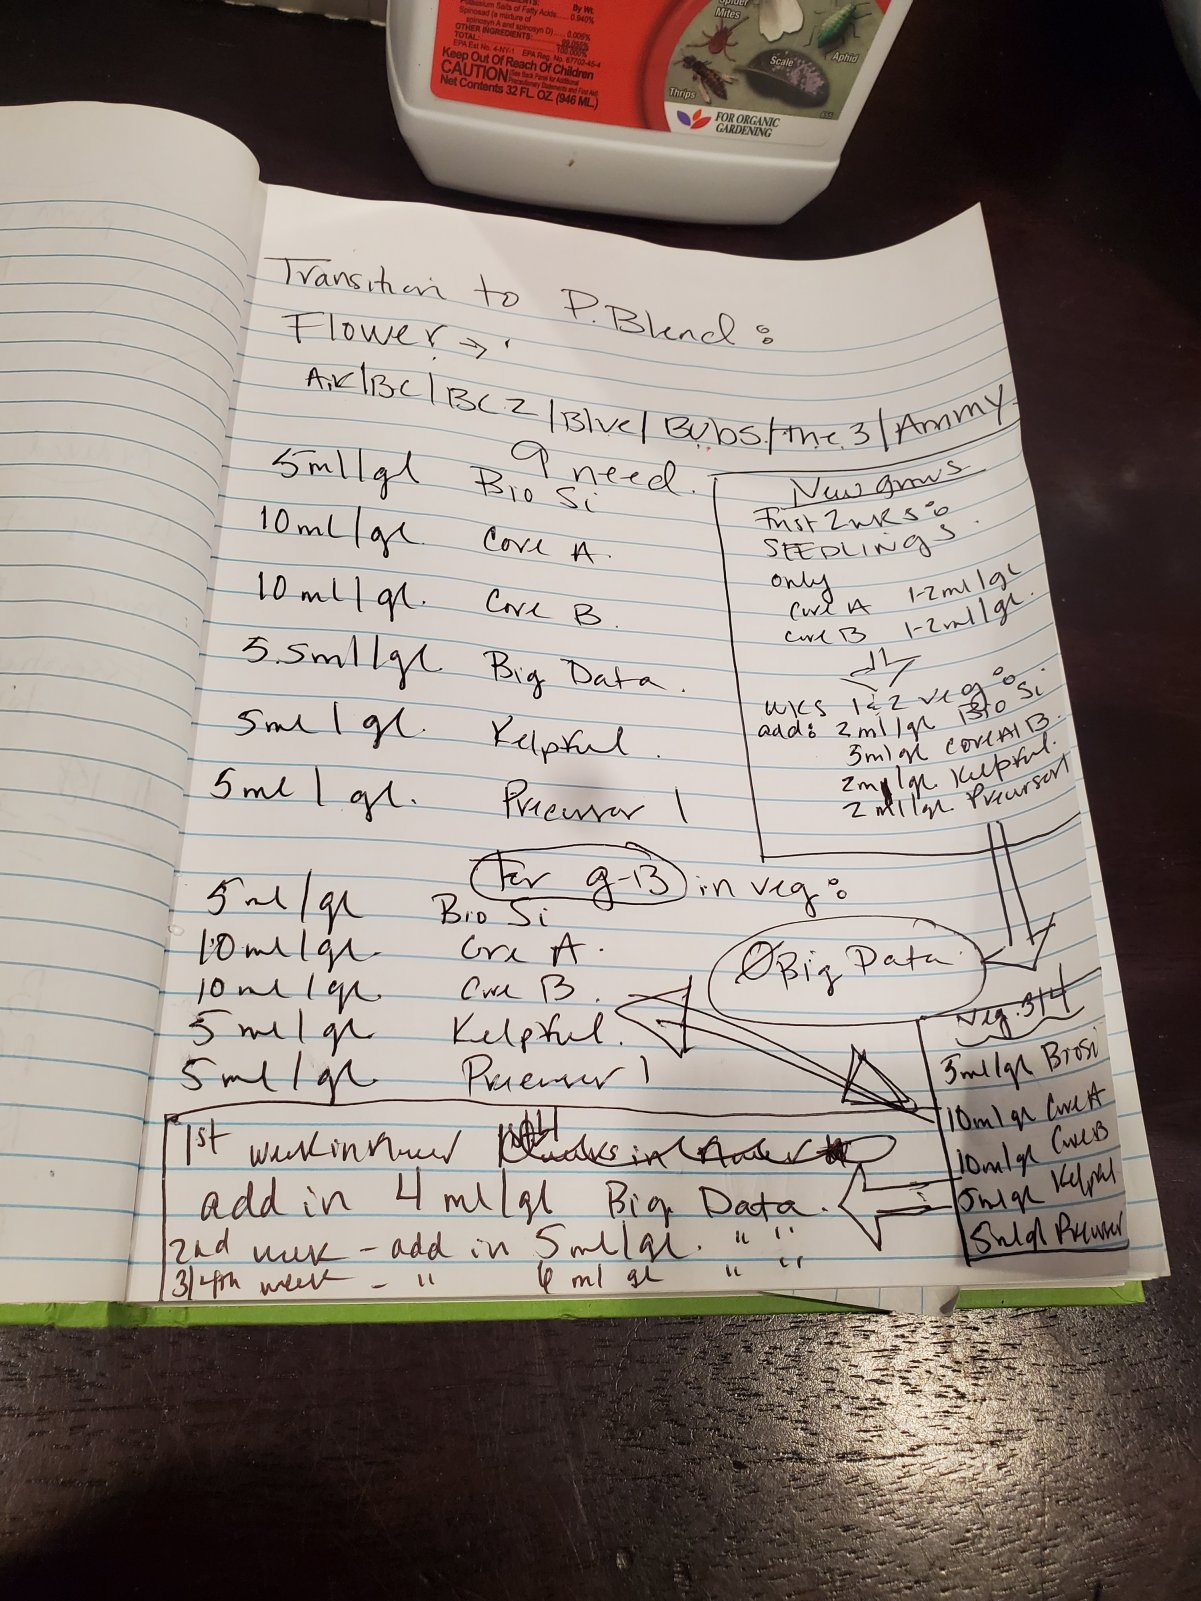 Potassium Salts of Fatty Acids.... 0.940%
Spinosad (a mixture of
spinosyn A and spinosyn D)..... 0.005%
OTHER INGREDIENTS:
TOTAL: 100.000%
EPA Est No. 4-NY-1 EPA Reg. No. 67702-45-4
Keep Out Of Reach Of Children
CAUTION
Net Contents 32 FL. OZ. (946 ML.)
Spider
Mites
Aphid
Scale
Thrips
FOR ORGANIC
GARDENING
Transition to P. Blend:
Flower →
/BC/BC2/Blue/Bubs/the 3/Ammy
9 need.
5ml/gl Bio Si
10ml/gl. Core A.
10ml/gl. Core B.
5.5ml/gl Big Data.
5ml/gl. Kelpful.
5ml/gl. Precursor 1
New grows
First 2 wks:
SEEDLINGS
only
Core A 1-2ml/gl
Core B 1-2ml/gl.
wks 1 & 2 veg:
add: 2ml/gl Bio Si
5ml/gl Core A/B.
2ml/gl Kelpful.
2ml/gl Precursor 1
For g-13 in veg:
5ml/gl Bio Si
10ml/gl. Core A.
10ml/gl. Core B.
5ml/gl Kelpful.
5ml/gl Precursor 1
Ø Big Data
Veg. 3/4
5ml/gl BioSi
10ml/gl Core A
10ml/gl Core B
5ml/gl Kelpful
5ml/gl Precursor
1st week in flower
add in 4 ml/gl Big Data.
2nd week - add in 5ml/gl. " "
3/4th week - " 6 ml gl " "